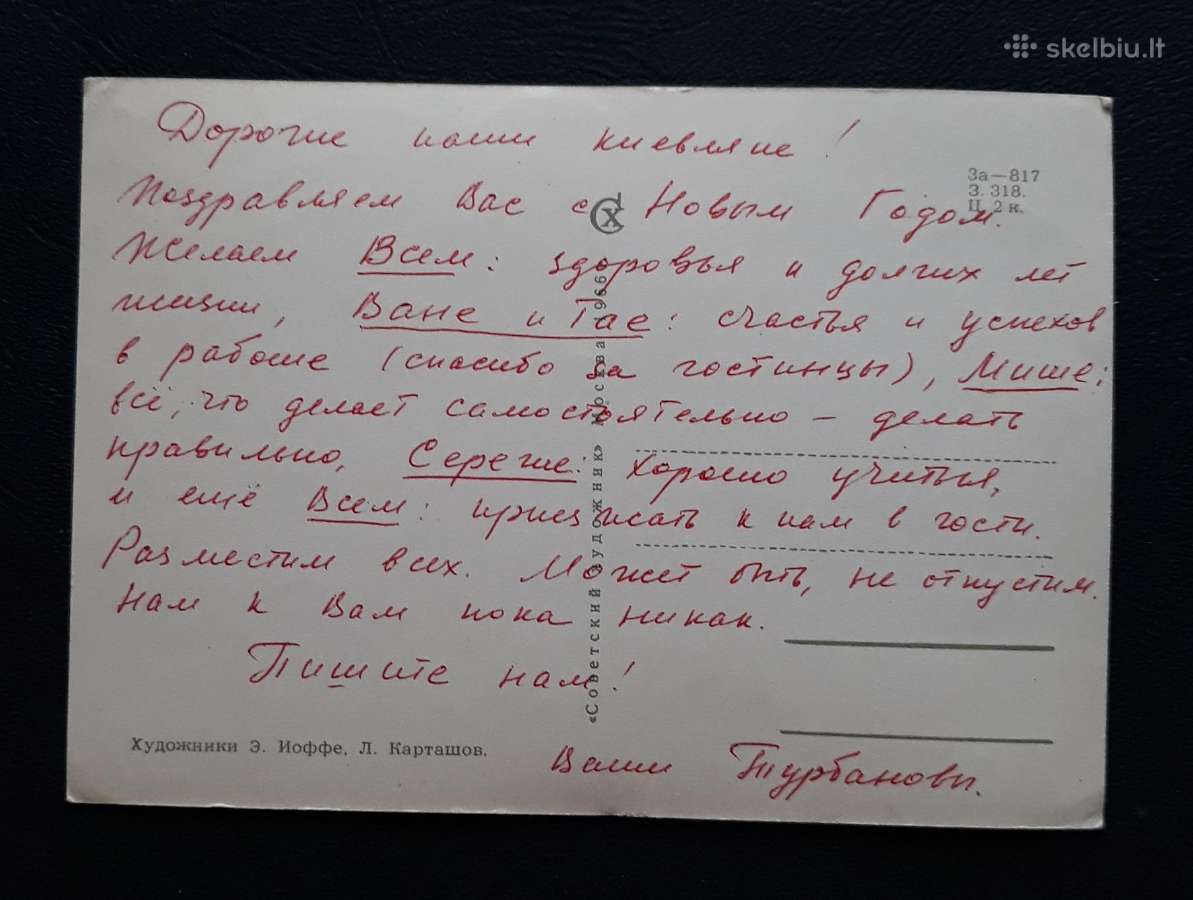 skelbiu.lt
Дорогие наши киевляне!
За—817
З. 318.
Ц. 2 к.
Поздравляем Вас с Новым Годом.
Желаем Всем: здоровья и долгих лет
жизни, Ване и Тае: счастья и успехов
в работе (спасибо за гостинцы), Мише:
всё, что делает самостоятельно — делать
правильно, Сереже: хорошо учиться,
и ещё Всем: приезжать к нам в гости.
Разместим всех. Может быть, не отпустим.
Нам к Вам пока никак.
Пишите нам!
«Советский художник» Москва 1966
Художники Э. Иоффе, Л. Карташов.
Ваши Турбановы.